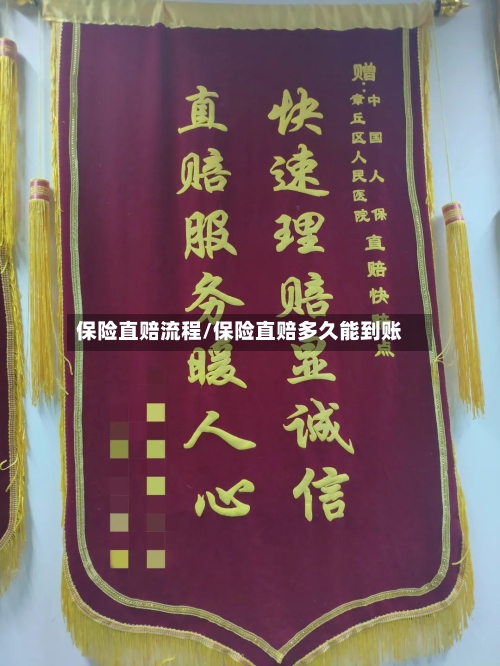 赠:
中国人保直赔快赔点
章丘区人民医院
快速理赔显诚信
直赔服务暖人心
保险直赔流程/保险直赔多久能到账